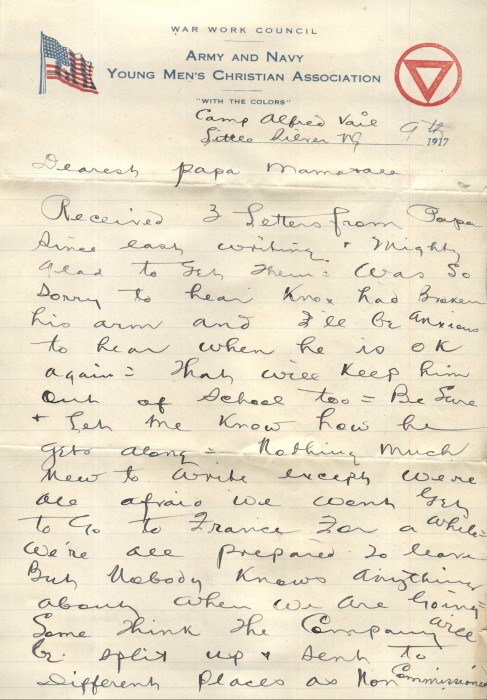 WAR WORK COUNCIL
ARMY AND NAVY
YOUNG MEN'S CHRISTIAN ASSOCIATION
"WITH THE COLORS"
Camp Alfred Vail
Little Silver NJ 9th 1917
Dearest Papa Mama & all
Received 3 Letters from Papa
Since last writing & Mighty
glad to Get Them = Was So
Sorry to hear Knox had Broken
his arm and I'll be anxious
to hear when he is OK
again = That will Keep him
out of School too = Be Sure
& Let Me Know how he
gets along = Nothing Much
New to write except we're
all afraid we wont Get
to Go to France For a while =
We're all prepared to leave
But Nobody Knows anything
about when we are Going =
Some think The Company will
be split up & sent to
Different places as Non Commissioned